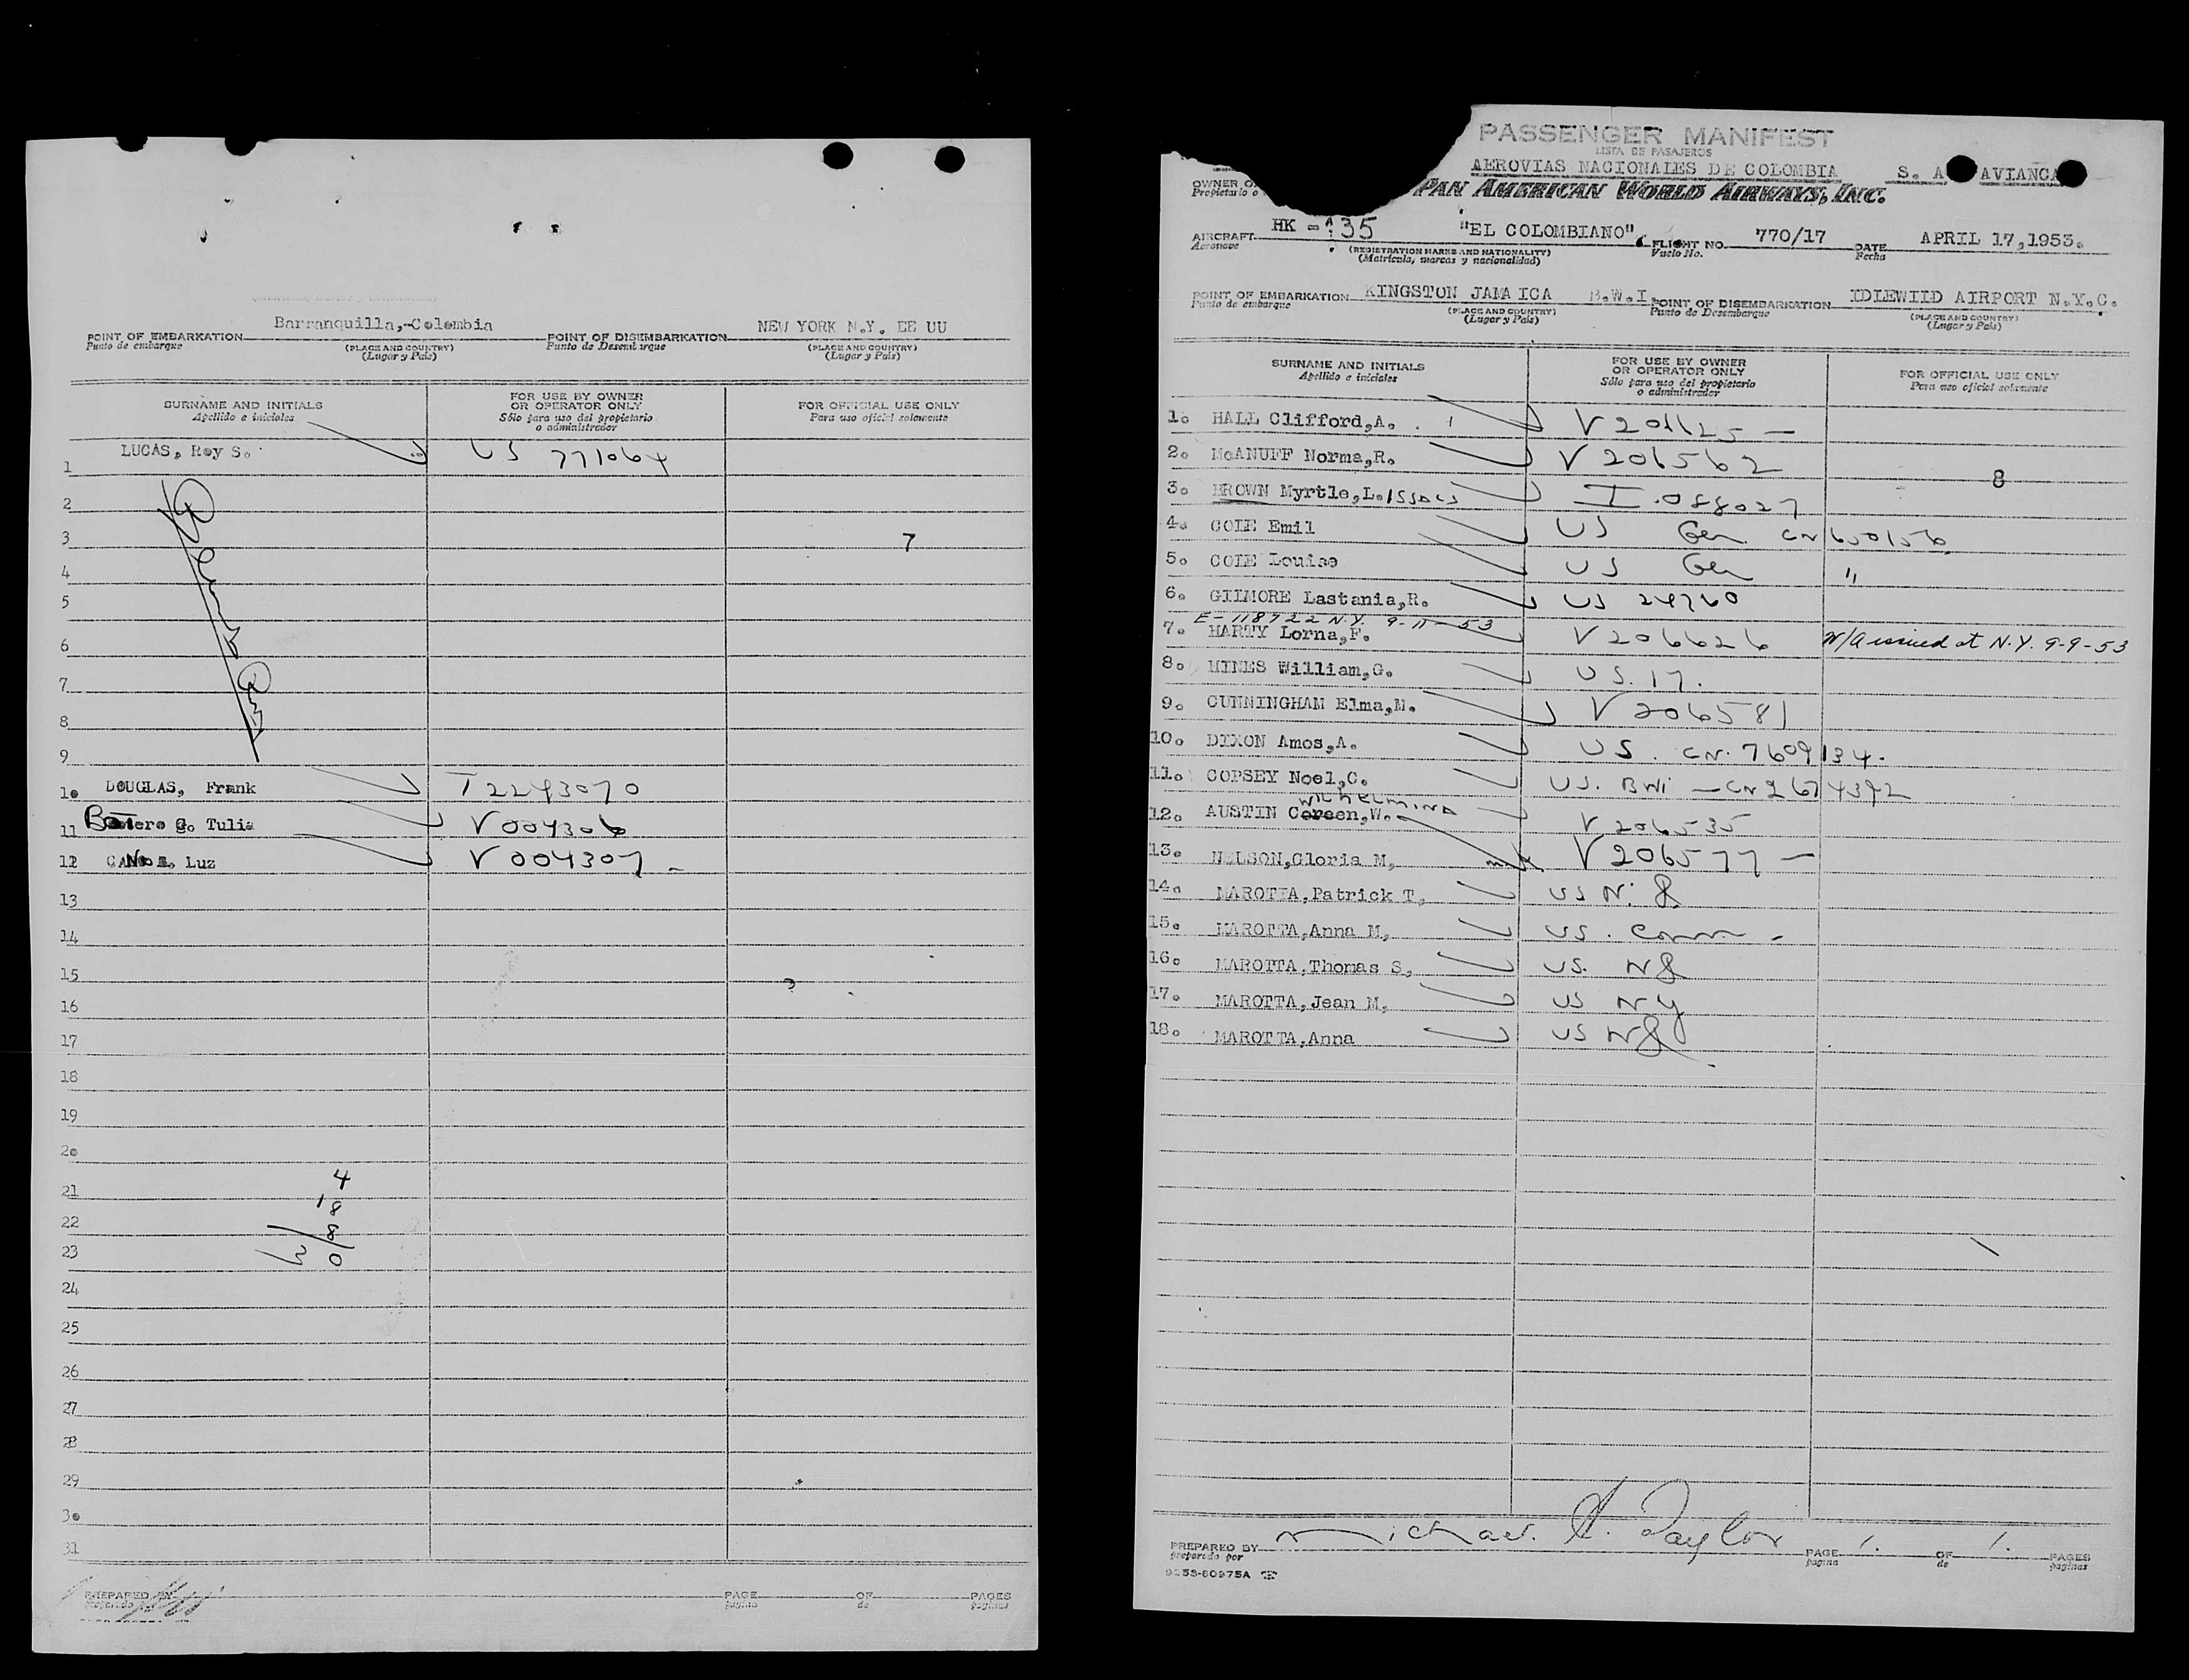 POINT OF EMBARKATION Barranquilla,-Colombia POINT OF DISEMBARKATION NEW YORK N.Y. EE UU
Punto de embarque (PLACE AND COUNTRY) Punto de Desembarque (PLACE AND COUNTRY)
(Lugar y País) (Lugar y País)
SURNAME AND INITIALS FOR USE BY OWNER OR OPERATOR ONLY FOR OFFICIAL USE ONLY
Apellido e iniciales Sólo para uso del propietario o administrador Para uso oficial solamente
1 LUCAS, Roy S. US 771064
2
3 7
4
5
6
7
8
9
10 DOUGLAS, Frank T2293070
11 Botero G. Tulia V004306
12 CANO Luz V004307
13
14
15
16
17
18
19
20
21
22
23
24
25
26
27
28
29
30
31
PREPARED BY PAGE OF PAGES
preparado por pagina de paginas
PASSENGER MANIFEST
LISTA DE PASAJEROS
AEROVIAS NACIONALES DE COLOMBIA S. A AVIANCA
OWNER O
Propietario o PAN AMERICAN WORLD AIRWAYS, INC.
AIRCRAFT HK - 135 "EL COLOMBIANO" FLIGHT NO. 770/17 DATE APRIL 17,1953.
Aeronave (REGISTRATION MARKS AND NATIONALITY) Vuelo No. Fecha
(Matrícula, marcas y nacionalidad)
POINT OF EMBARKATION KINGSTON JAMAICA B.W.I. POINT OF DISEMBARKATION IDLEWILD AIRPORT N.Y.C.
Punto de embarque (PLACE AND COUNTRY) Punto de Desembarque (PLACE AND COUNTRY)
(Lugar y País) (Lugar y País)
SURNAME AND INITIALS FOR USE BY OWNER OR OPERATOR ONLY FOR OFFICIAL USE ONLY
Apellido e iniciales Sólo para uso del propietario o administrador Para uso oficial solamente
1. HALL Clifford,A. V 201625 —
2. McANUFF Norma,R. V 206562 8
3. BROWN Myrtle,L. ISSACS I.088027
4. COLE Emil US Gen CN 650156
5. COLE Louise US Gen "
6. GILMORE Lastania,R. US 24760
E-118722 N.Y. 9-11-53
7. HARTY Lorna,F. V206626 W/A issued at N.Y. 9-9-53
8. MINES William,G. US. 17.
9. CUNNINGHAM Elma,M. V 206581
10. DIXON Amos,A. US. CN. 7609134.
11. COPSEY Noel,C. US. BWI — CN 2674392
wilhelmina
12. AUSTIN Coreen,W. V 206535
13. NELSON,Gloria M, V 206577 —
14. MAROTTA,Patrick T, US NY
15. MAROTTA,Anna M, US. Conn -
16. MAROTTA,Thomas S, US. NY
17. MAROTTA,Jean M, US NY
18. MAROTTA,Anna US NY
PREPARED BY Michael A. Taylor PAGE 1. OF 1. PAGES
preparado por pagina de paginas
9253-60975A